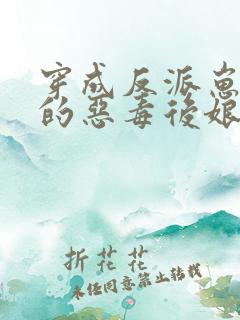 穿成反派崽
的惡毒後娘
折花花
未经同意禁止转载